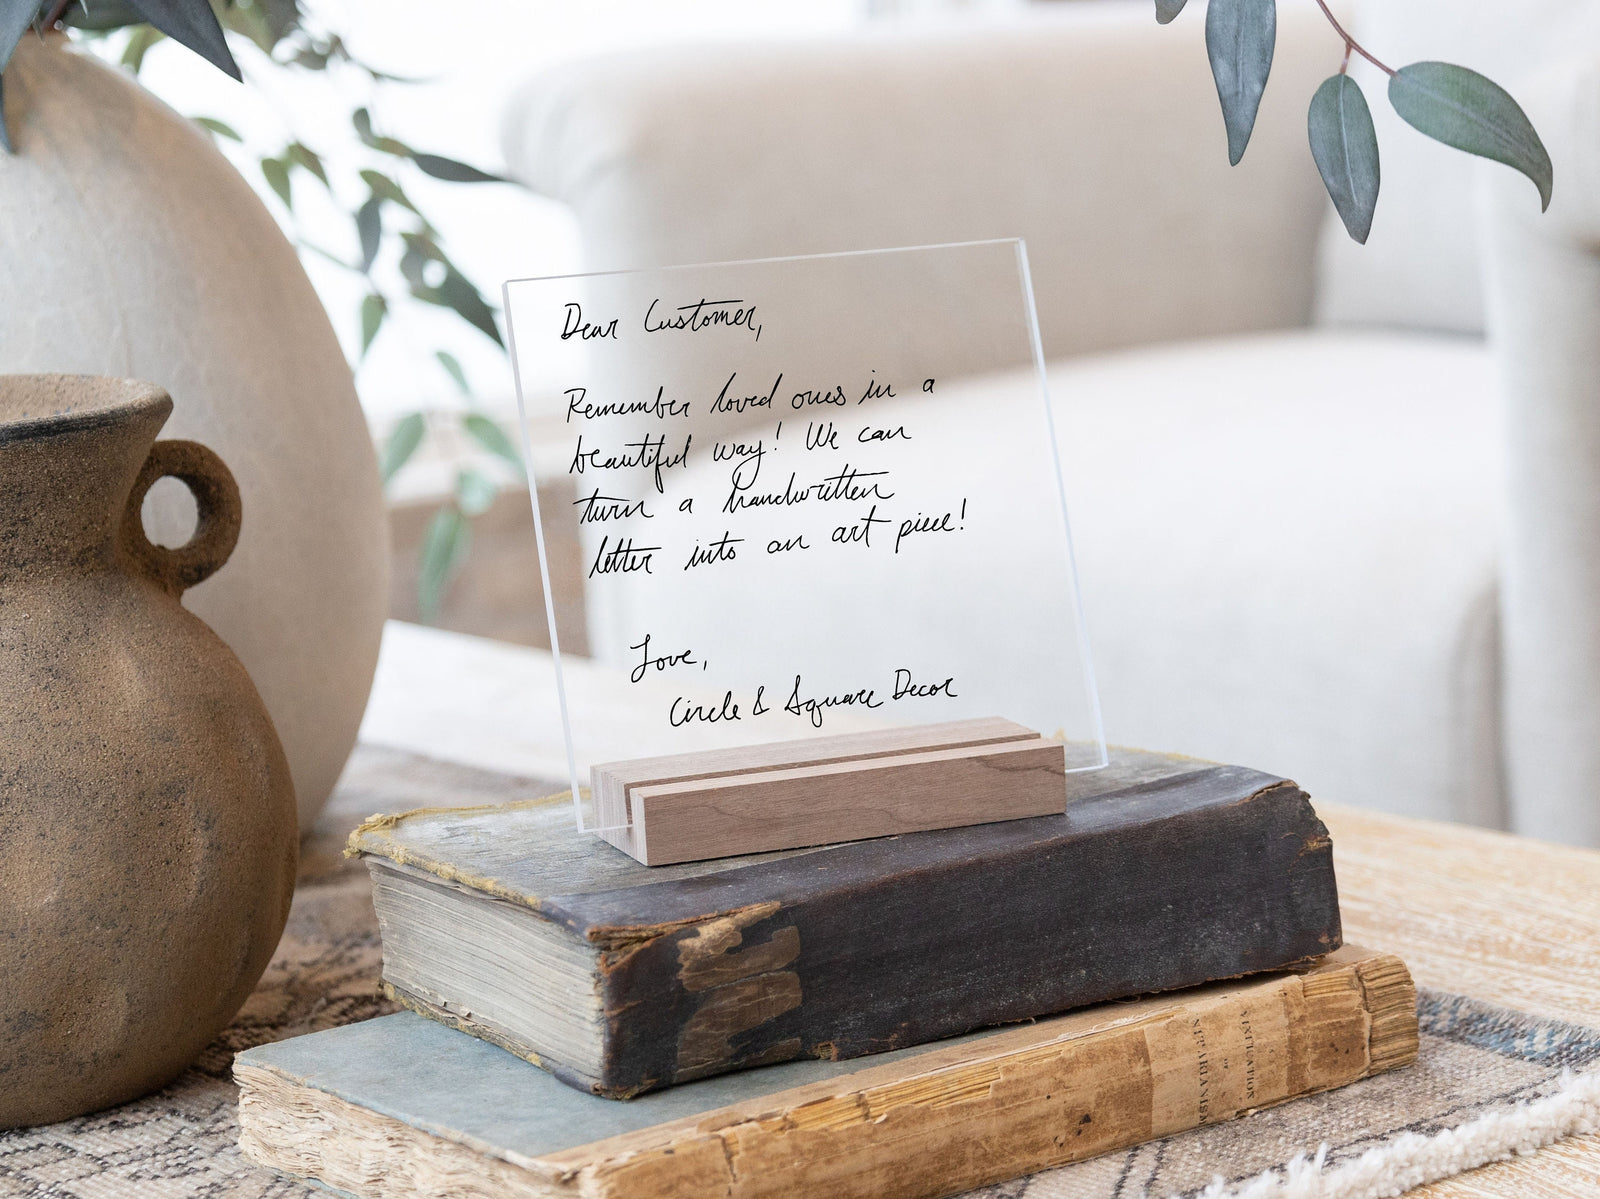 Dear Customer,
Remember loved ones in a
beautiful way! We can
turn a handwritten
letter into an art piece!
Love,
Circle & Square Decor
OF